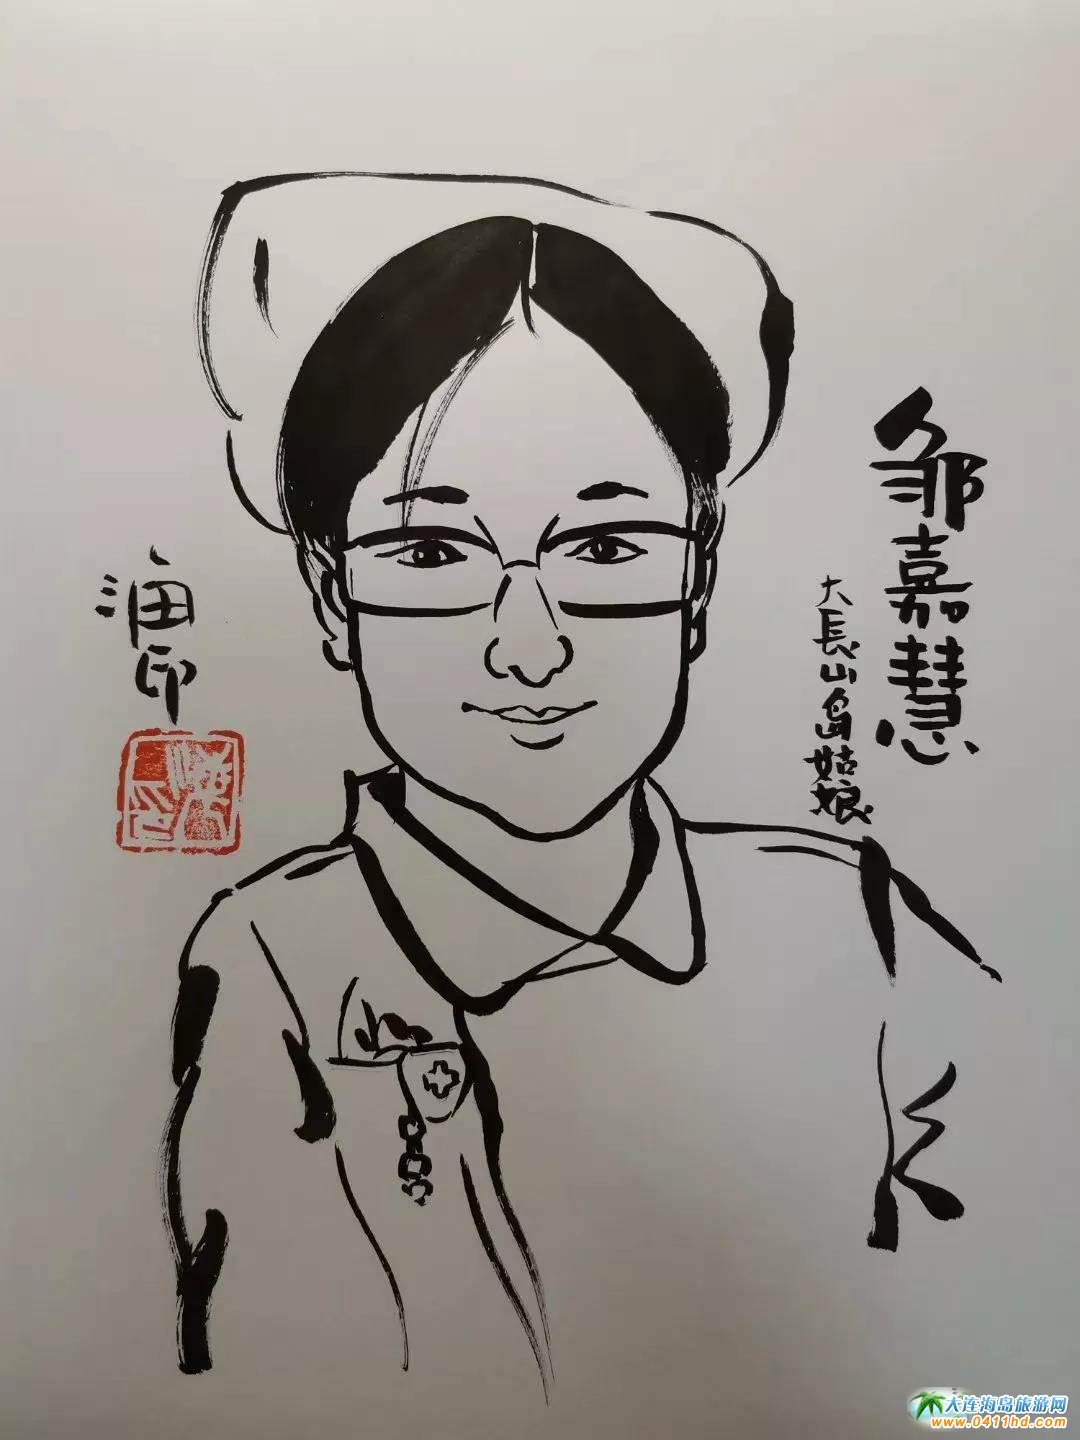 邹嘉慧
大長山岛姑娘
海印
大连海岛旅游网
www.0411hd.com